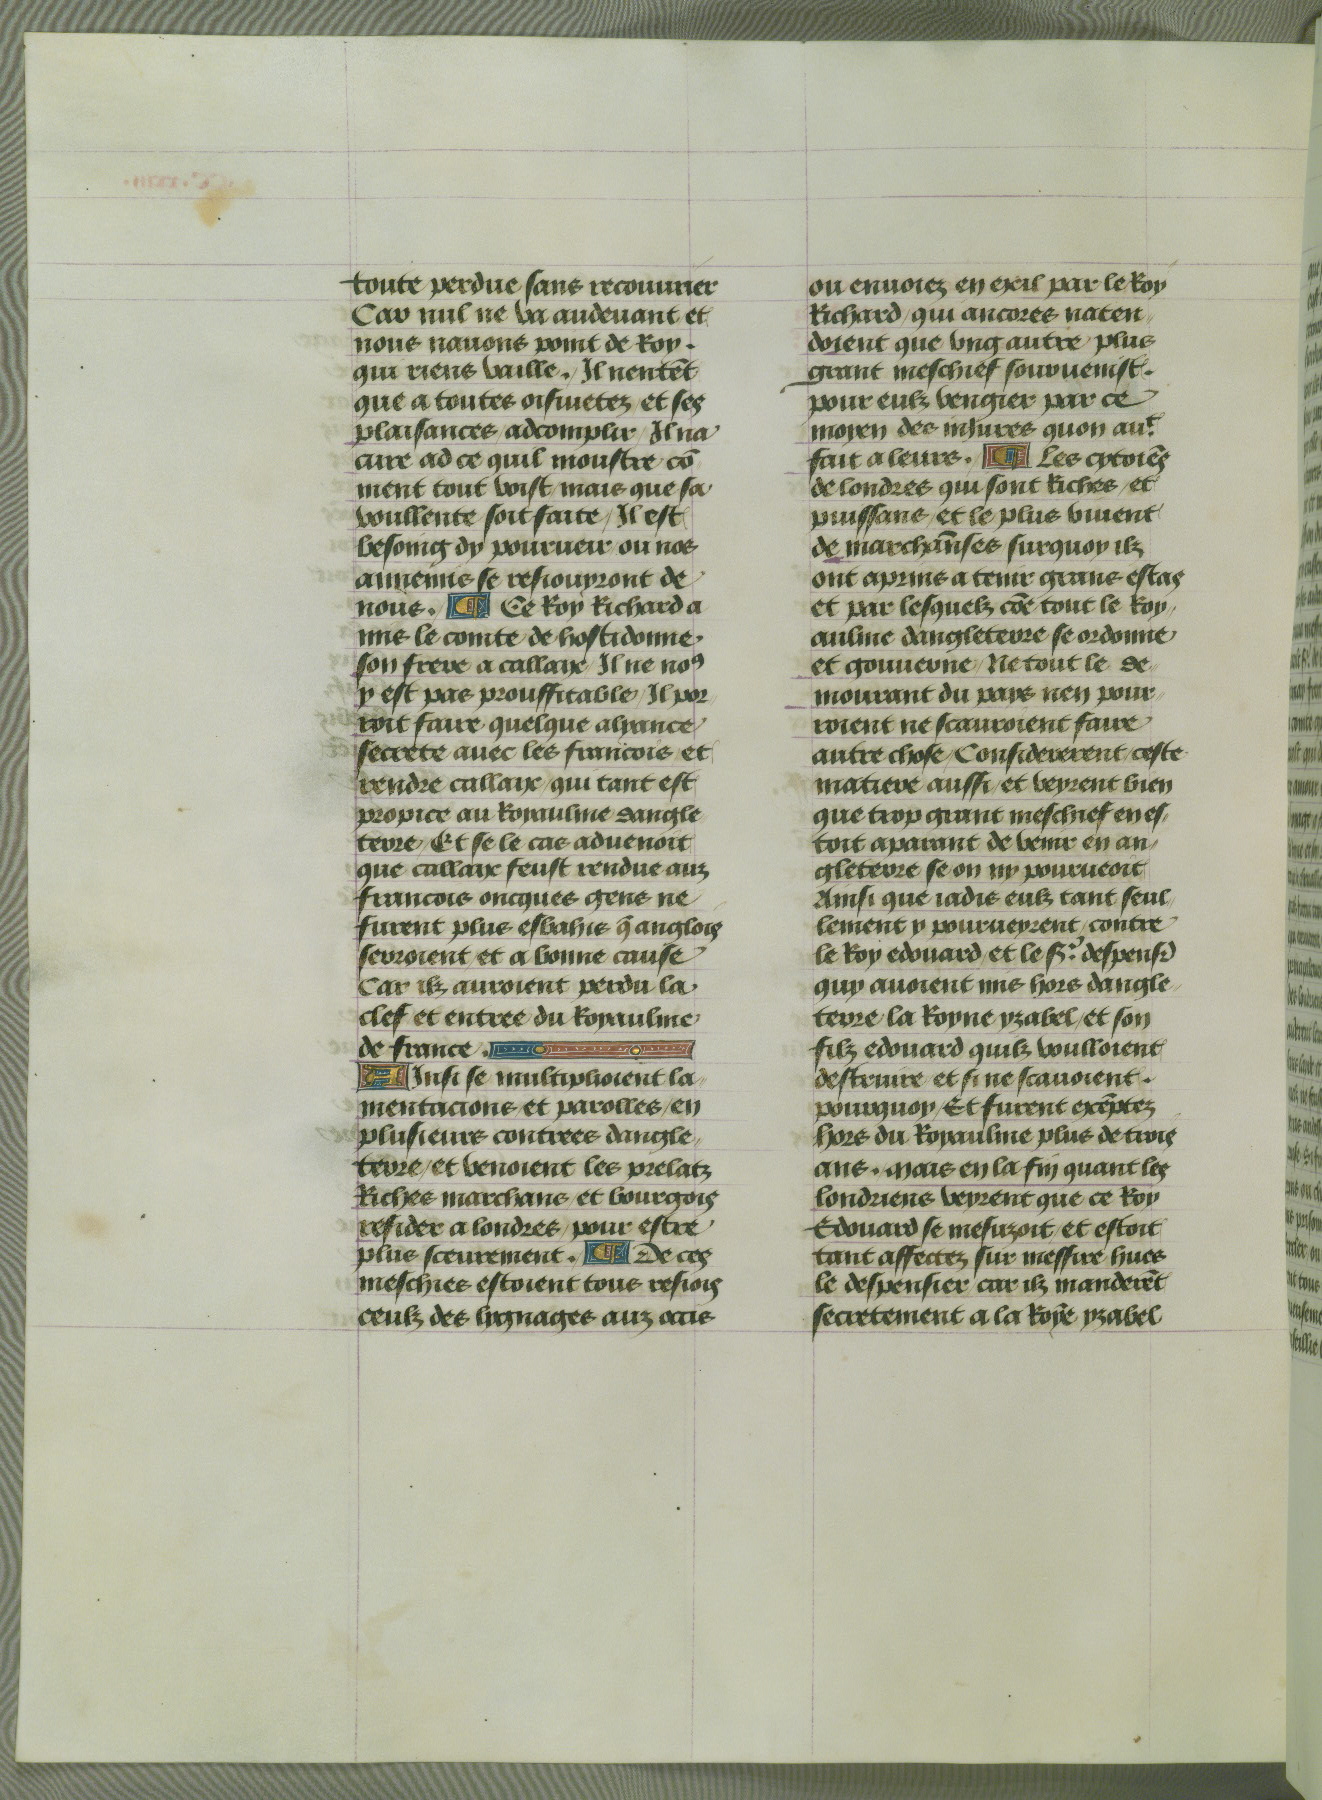 toute perdue sans recouurier
Car nul ne va audeuant et
nous nauons point de Roy.
qui riens vaille. Il nentẽt
que a toutes oisiuetez et ses
plaisances adcomplir / Il na
cure ad ce quil monstre cõ
ment tout voist / mais que sa
voullente soit faite / Il est
besoing dy pourueir ou nos
annemis se resiouyront de
nous. Ce Roy Richard a
mis le comte de hostidonne
son frere a callaix Il ne noꝰ
y est pas prouffitable / Il por
roit faire quelque alyance
secrete auec les francois et
rendre callaix / qui tant est
propice au Royaulme dangle
terre / Et se le cas aduenoit
que callaix feust rendue aux
francois oncques gens ne
furent plus esbahis q̃ anglois
seroient et a bonne cause
Car ilz auroient perdu la
clef et entree du Royaulme
de france.
AInsi se multiplioient la
mentacions et parolles / en
plusieurs contrees dangle
terre / et venoient les prelatz
Riches marchans et bourgois
resider a londres / pour estre
plus sceurement. De ces
meschies estoient tous resiois
ceulz des lygnages aux occis
ou enuoiez en exil par le Roy
Richard / qui ancores naten
doient que vng autre plus
grant meschief souruenist.
pour eulz vengier par ce
moyen des iniures quon auꝰt
fait a leurs. Les cytoiẽs
de londres qui sont Riches et
puissans / et le plus viuent
de marchãnses surquoy ilz
ont aprins a tenir grans estas
et par lesquelz cõe tout le Roy
aulme dangleterre se ordonne
et gouuerne / Ne tout le de
mourant du pays nen pour
roient ne scauroient faire
autre chose / Considererent ceste
matiere aussi / et veyrent bien
que trop grant meschief en es
toit aparant de venir en an
gleterre se on ny pourueoit
Ainsi que iadis eulz tant seul
lement y pourueyrent / contre
le Roy edouard et le Sr. despensr
quy auoient mis hors dangle
terre la Royne yzabel / et son
filz edouard quilz voulloient
destruire et si ne scauoient.
pourquoy / Et furent excẽptez
hors du Royaulme plus de trois
ans. mais en la fin quant les
londriens veyrent que ce Roy
Edouard se mesuzoit et estoit
tant affectez sur messire hues
le despensier car ilz manderẽt
secretement a la Royẽ yzabel